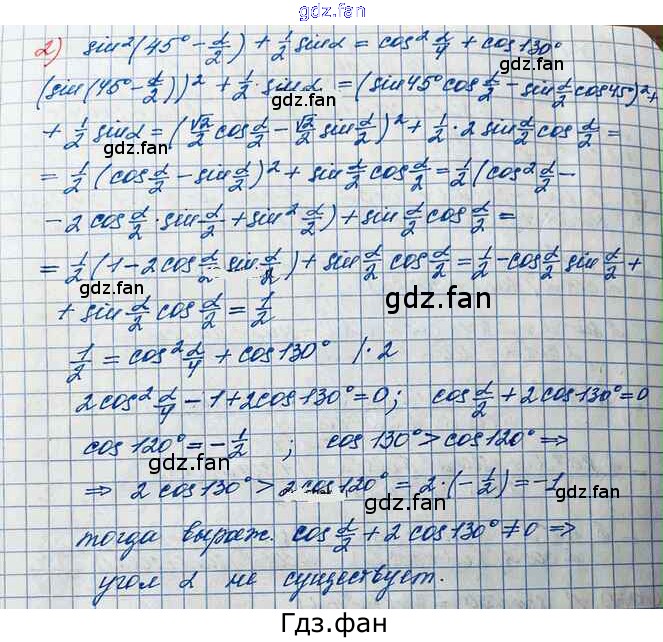 gdz.fan
2) sin²(45° - α/2) + 1/2 sinα = cos² α/4 + cos130°
(sin(45° - α/2))² + 1/2 · sinα = (sin45° cos α/2 - sin α/2 cos45°)² +
gdz.fan
+ 1/2 sinα = (√2/2 cos α/2 - √2/2 sin α/2)² + 1/2 · 2 sin α/2 cos α/2 =
gdz.fan
= 1/2 (cos α/2 - sin α/2)² + sin α/2 cos α/2 = 1/2 (cos² α/2 -
- 2 cos α/2 · sin α/2 + sin² α/2) + sin α/2 cos α/2 =
= 1/2 (1 - 2 cos α/2 sin α/2) + sin α/2 cos α/2 = 1/2 - cos α/2 sin α/2 +
gdz.fan
+ sin α/2 cos α/2 = 1/2
gdz.fan
1/2 = cos² α/4 + cos130° | · 2
2cos² α/4 - 1 + 2cos130° = 0; cos α/2 + 2cos130° = 0
cos120° = - 1/2 ; cos130° > cos120° ⇒
gdz.fan
gdz.fan
⇒ 2cos130° > 2cos120° = 2 · (- 1/2) = -1
gdz.fan
тогда выраж. cos α/2 + 2cos130° ≠ 0 ⇒
угол α не существует.
Гдз.фан